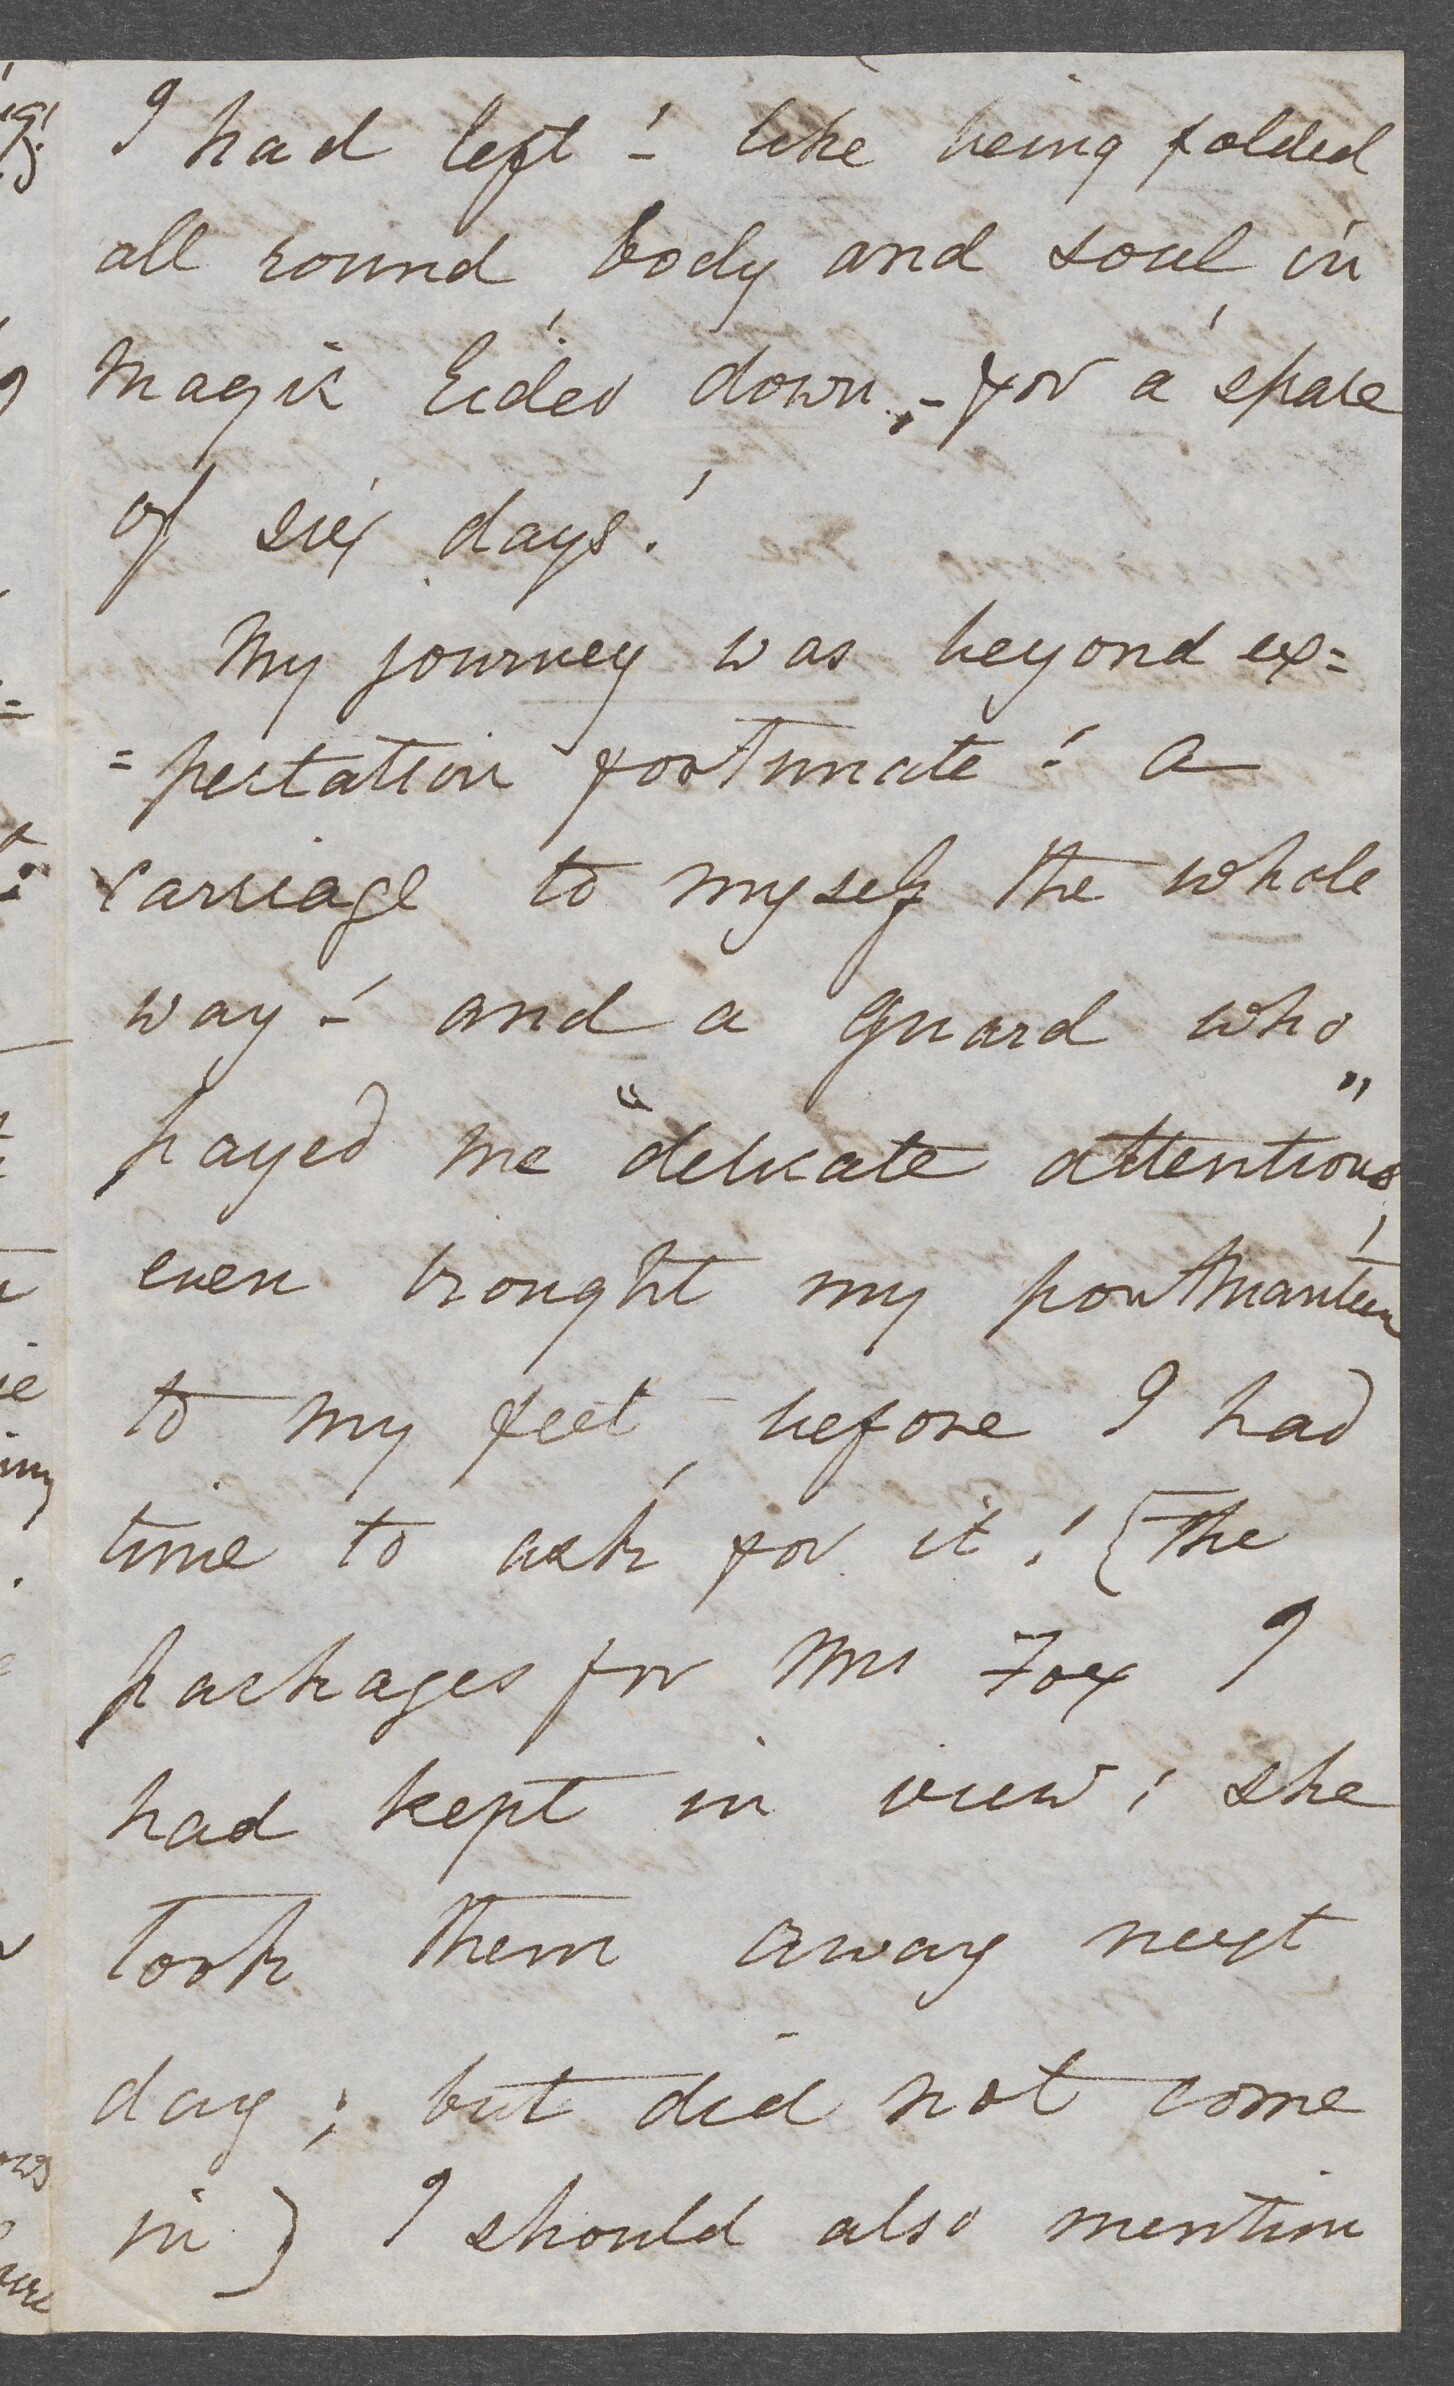 I had left! – like being folded
all round, body and soul, in
magic Eider down, – for a space
of six days!
My journey was beyond ex=
=pectation fortunate! a
carriage to myself the whole
way! – and a guard who
payed me "delicate attentions,"
even brought my portmanteau
to my feet, before I had
time to ask for it! (The
packages for Mrs Fox I
had kept in view; she
took them away next
day; but did not come
in) I should also mention